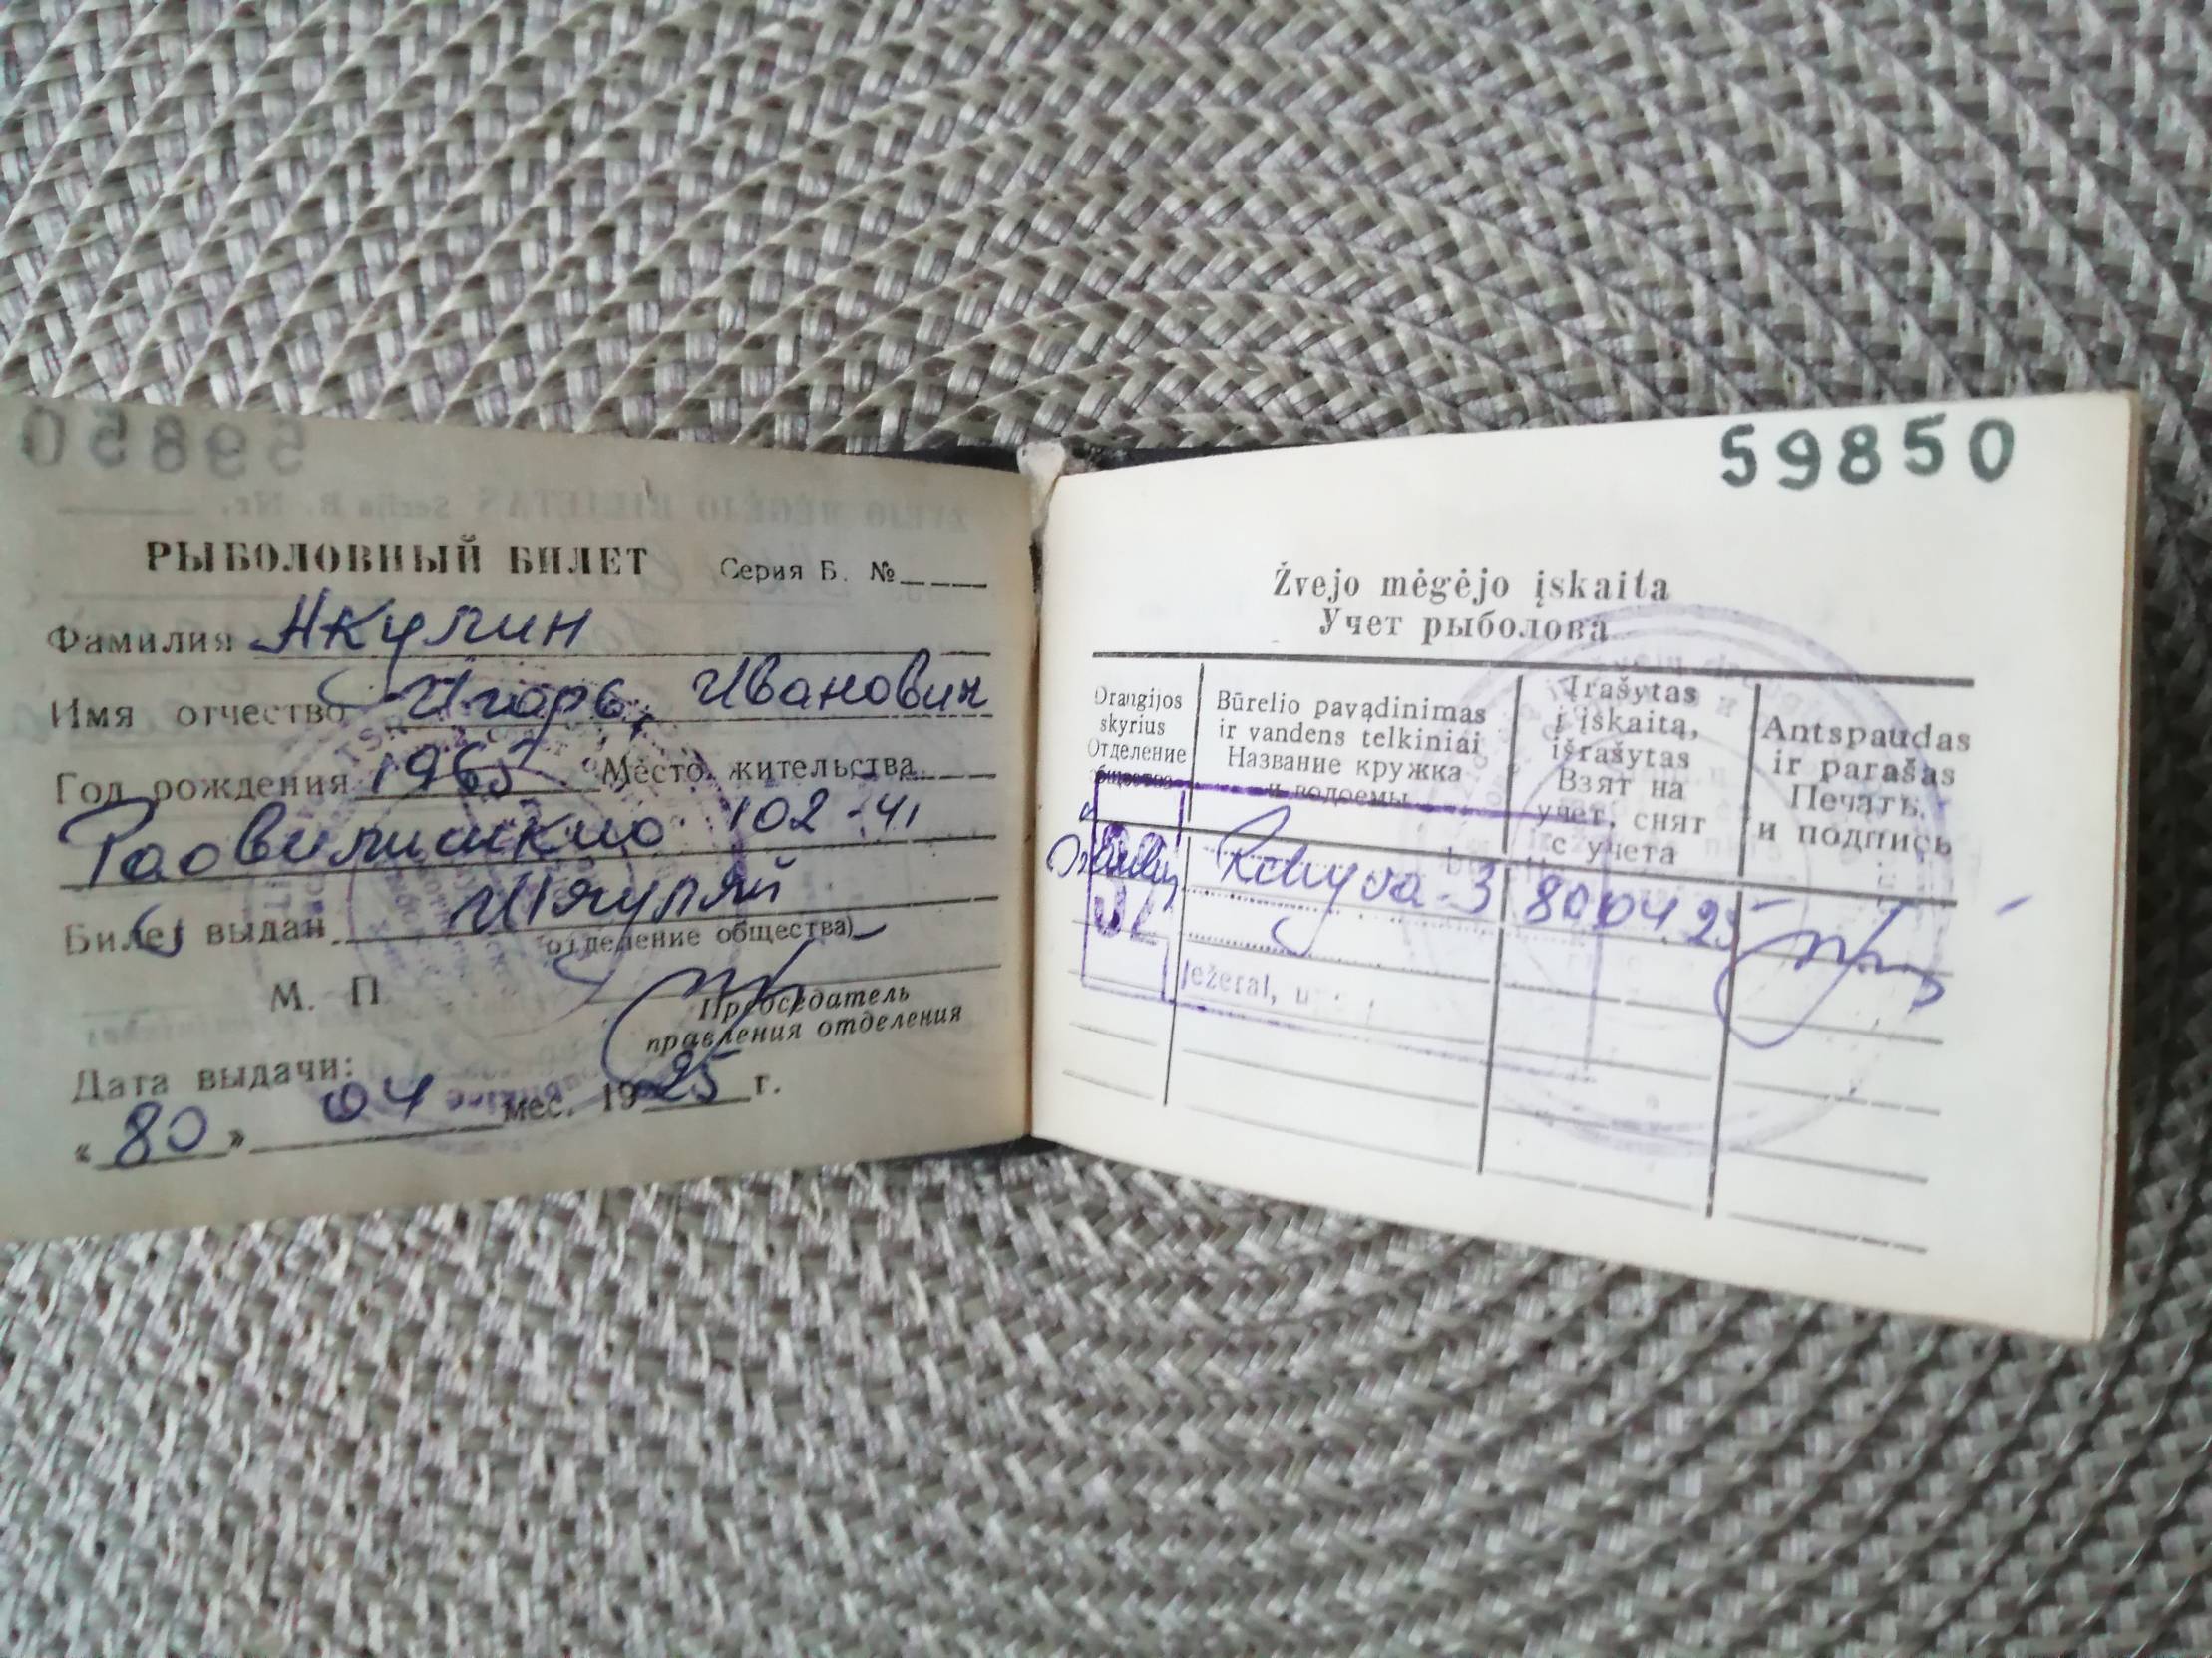 РЫБОЛОВНЫЙ БИЛЕТ Серия Б. №
Фамилия Якулин
Имя отчество Игорь, Иванович
Год рождения 1965 Место жительства
102-41
Билет выдан Шяуляй
отделение общества)
М. П.
Председатель
правления отделения
Дата выдачи:
«80» 04 мес. 1925 г.
59850
Žvejo mėgėjo įskaita
Учет рыболова
Drangijos
skyrius
Отделение
общества
Būrelio pavadinimas
ir vandens telkiniai
Название кружка
и водоемы
Įrašytas
į įskaitą,
išrašytas
Взят на
учет, снят
с учета
Antspaudas
ir parašas
Печать
и подпись
800425
Ježerai,